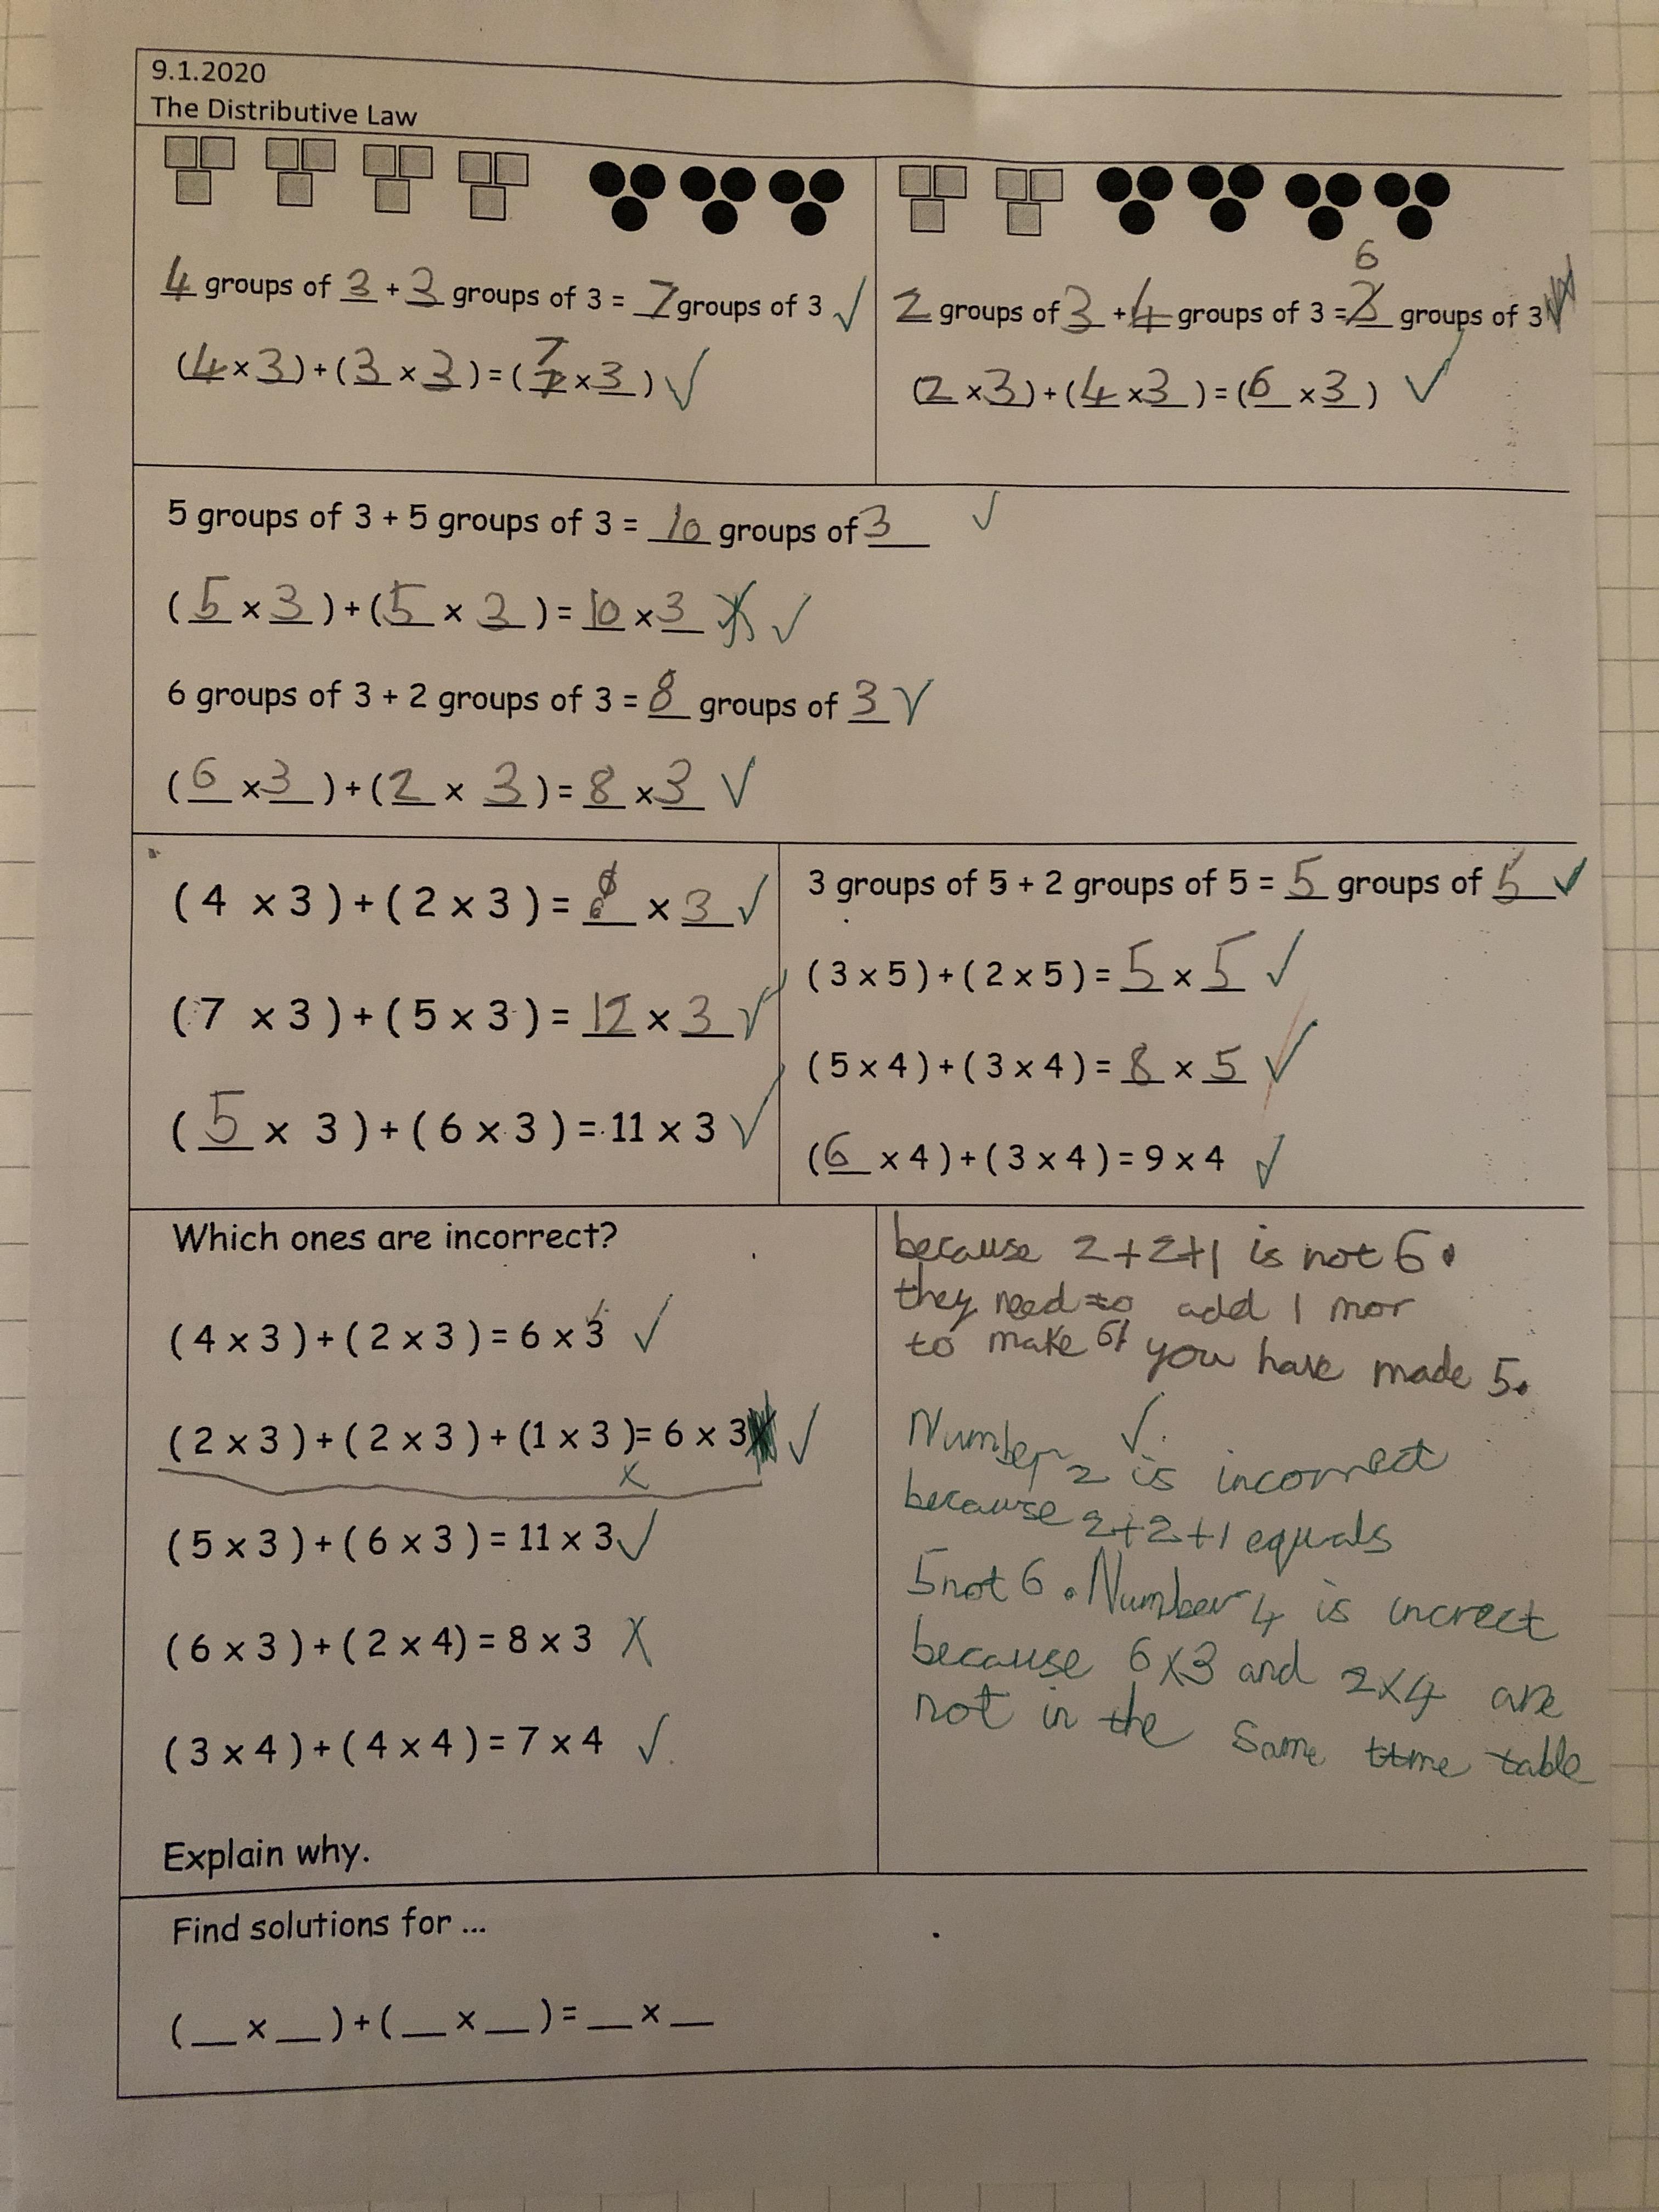 9.1.2020
The Distributive Law
4 groups of 3 + 3 groups of 3 = 7 groups of 3 ✓
(4 × 3) + (3 × 3) = (7 × 3) ✓
6
2 groups of 3 + 4 groups of 3 = groups of 3
(2 × 3) + (4 × 3) = (6 × 3) ✓
5 groups of 3 + 5 groups of 3 = 10 groups of 3 ✓
(5 × 3) + (5 × 3) = 10 × 3 ✓
6 groups of 3 + 2 groups of 3 = 8 groups of 3 ✓
(6 × 3) + (2 × 3) = 8 × 3 ✓
(4 × 3) + (2 × 3) = 6 × 3 ✓
(7 × 3) + (5 × 3) = 12 × 3 ✓
(5 × 3) + (6 × 3) = 11 × 3 ✓
3 groups of 5 + 2 groups of 5 = 5 groups of 5 ✓
(3 × 5) + (2 × 5) = 5 × 5 ✓
(5 × 4) + (3 × 4) = 8 × 5 ✓
(6 × 4) + (3 × 4) = 9 × 4 ✓
Which ones are incorrect?
(4 × 3) + (2 × 3) = 6 × 3 ✓
(2 × 3) + (2 × 3) + (1 × 3) = 6 × 3 ✓
x
(5 × 3) + (6 × 3) = 11 × 3 ✓
(6 × 3) + (2 × 4) = 8 × 3 X
(3 × 4) + (4 × 4) = 7 × 4 ✓
Explain why.
because 2+2+1 is not 6.
they need to add 1 mor
to make 6 you have made 5.
✓
Number 2 is incorrect
because 2+2+1 equals
5 not 6. Number 4 is increct
because 6×3 and 2×4 are
not in the same ttme table
Find solutions for ...
(__ × __) + (__ × __) = __ × __